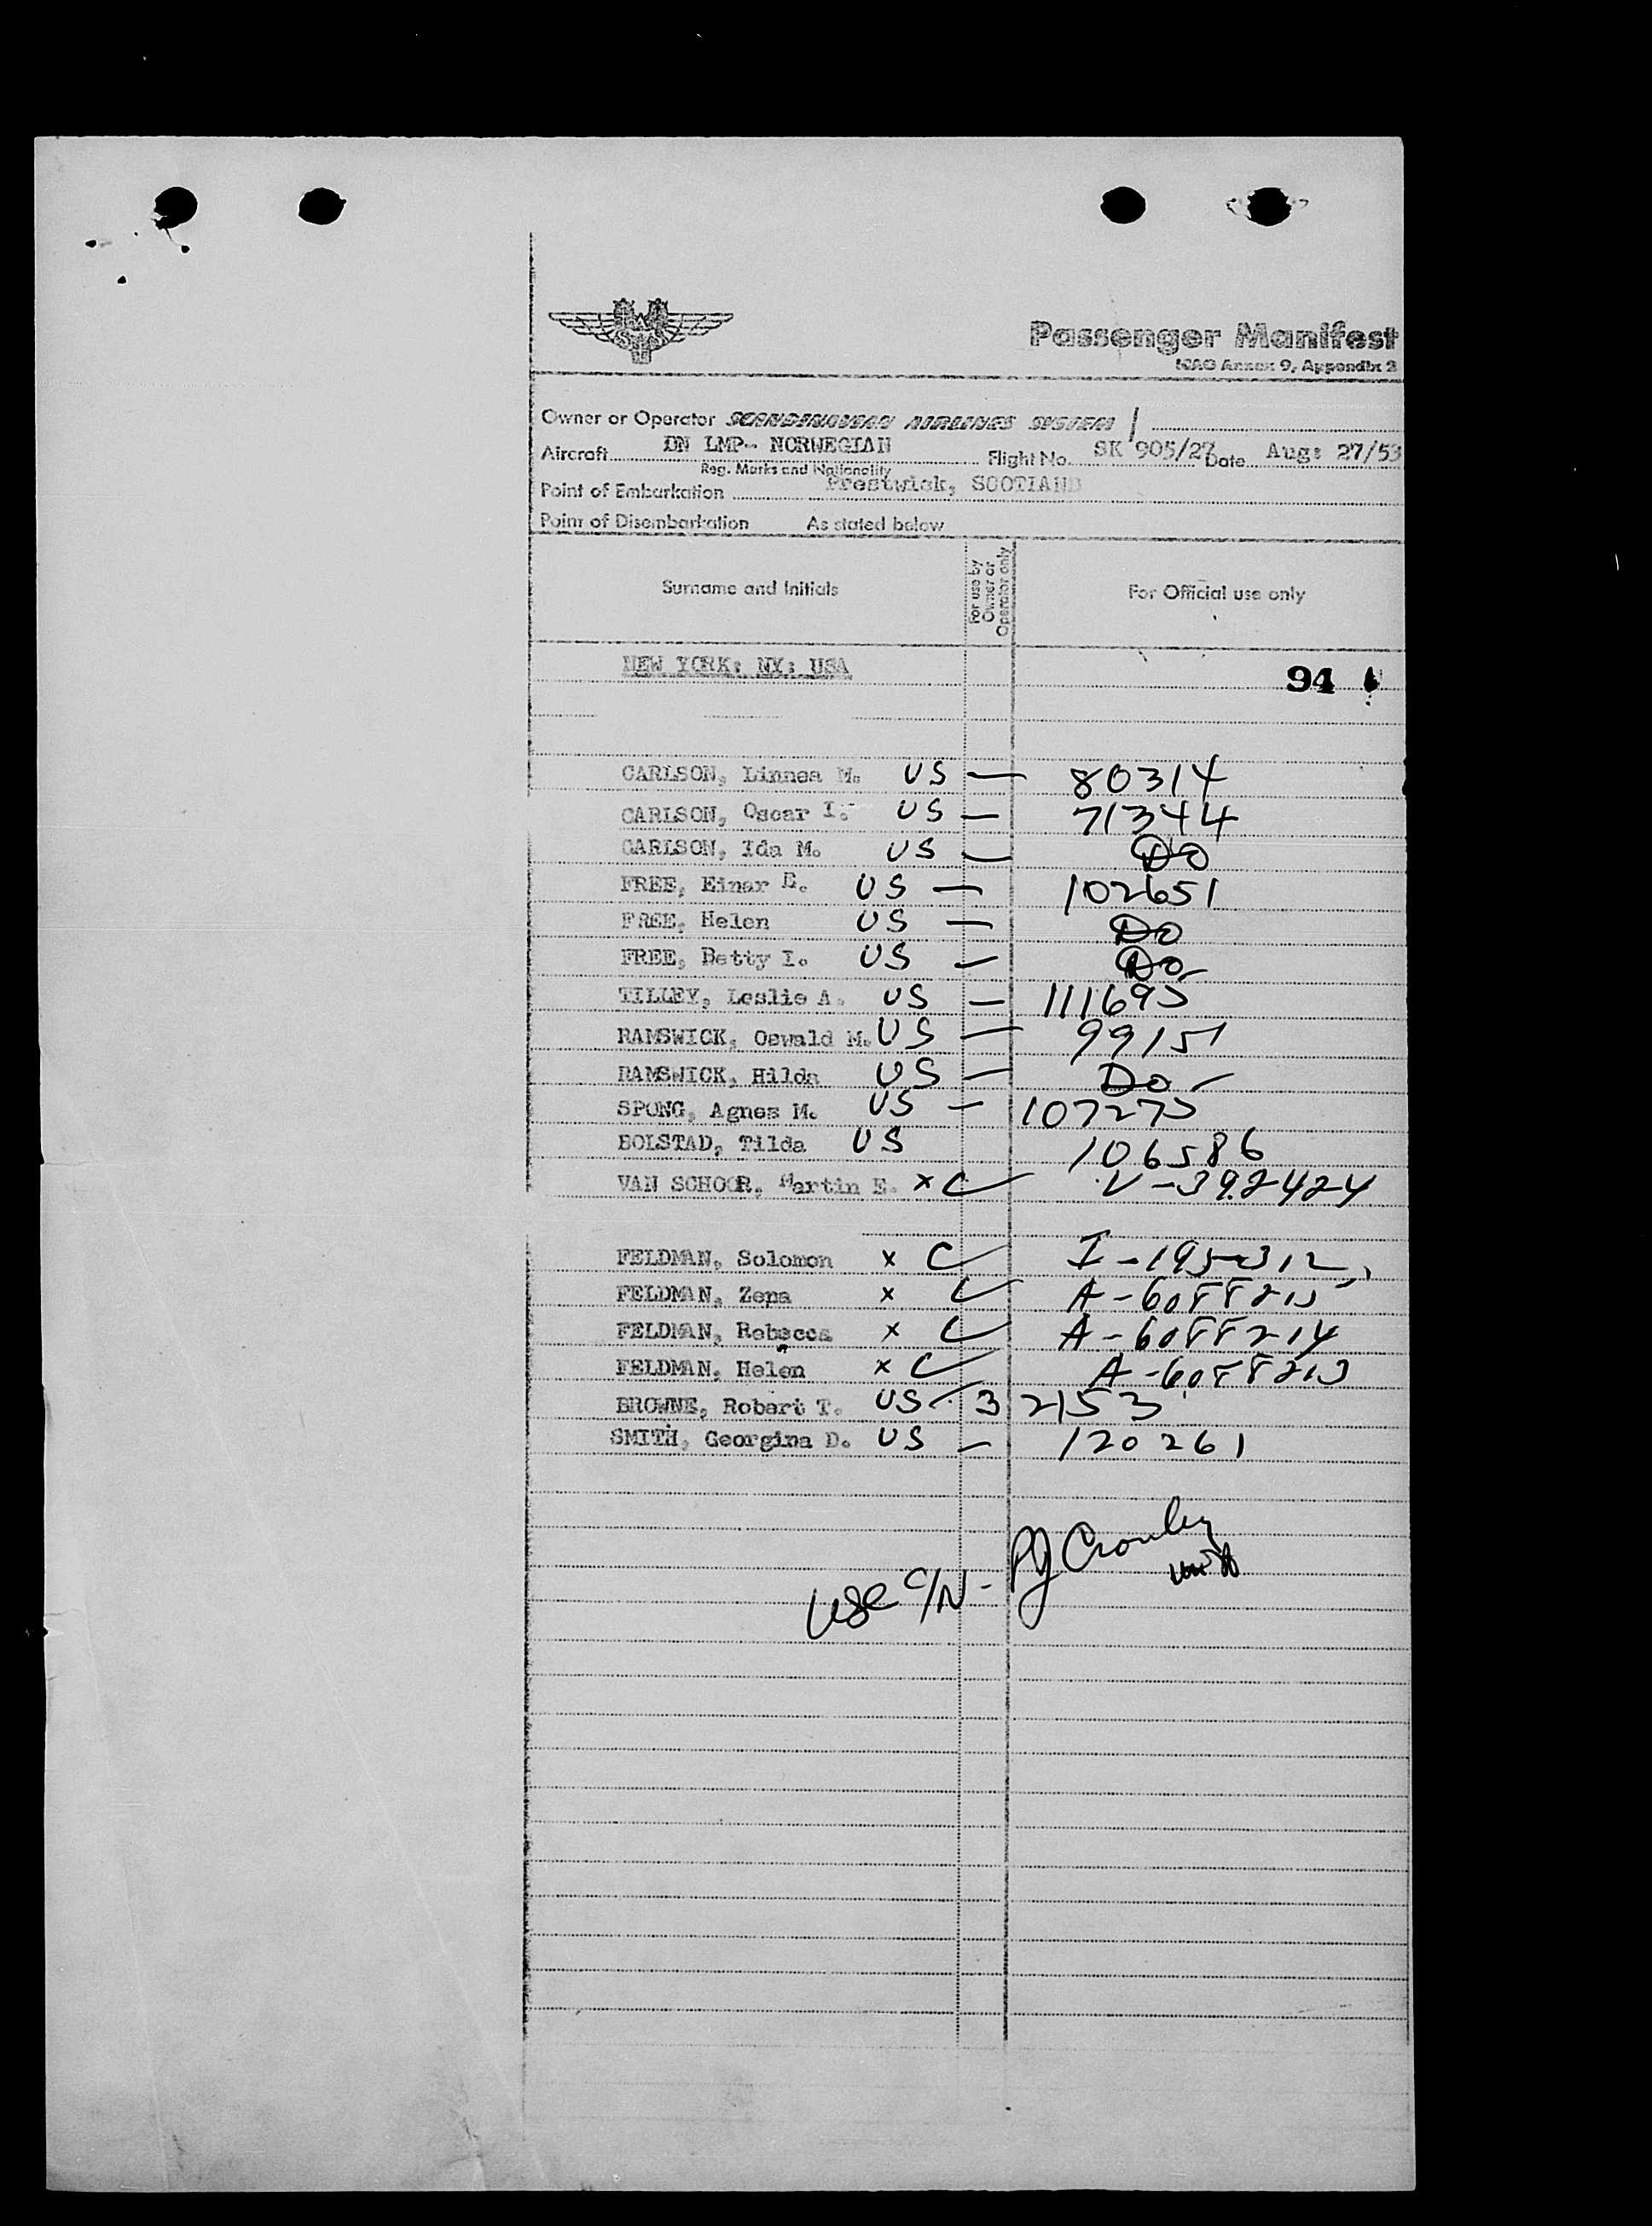 SAS
Passenger Manifest
ICAO Annex 9, Appendix 3
Owner or Operator SCANDINAVIAN AIRLINES SYSTEM /
Aircraft DN LMP-- NORWEGIAN Flight No. SK 905/27 Date Aug: 27/53
Reg. Marks and Nationality
Point of Embarkation Prestwick, SCOTLAND
Point of Disembarkation As stated below
Surname and Initials For use by Owner or Operator only For Official use only
NEW YORK: NY: USA
94
CARLSON, Linnea M. US — 80314
CARLSON, Oscar I. US — 71344
CARLSON, Ida M. US — DO
FREE, Einar E. US — 102651
FREE, Helen US — DO
FREE, Betty I. US — DO
TILLEY, Leslie A. US — 111695
RAMSWICK, Oswald M. US — 99151
RAMSWICK, Hilda US — DO
SPONG, Agnes M. US — 107275
BOLSTAD, Tilda US 106586
VAN SCHOOR, Martin E. x C V-392424
FELDMAN, Solomon x C I-195312
FELDMAN, Zepa x C A-6088215
FELDMAN, Rebecca x C A-6088214
FELDMAN, Helen x C A-6088213
BROWNE, Robert T. US 32153
SMITH, Georgina D. US — 120261
PJ Crowley
USC C/N -